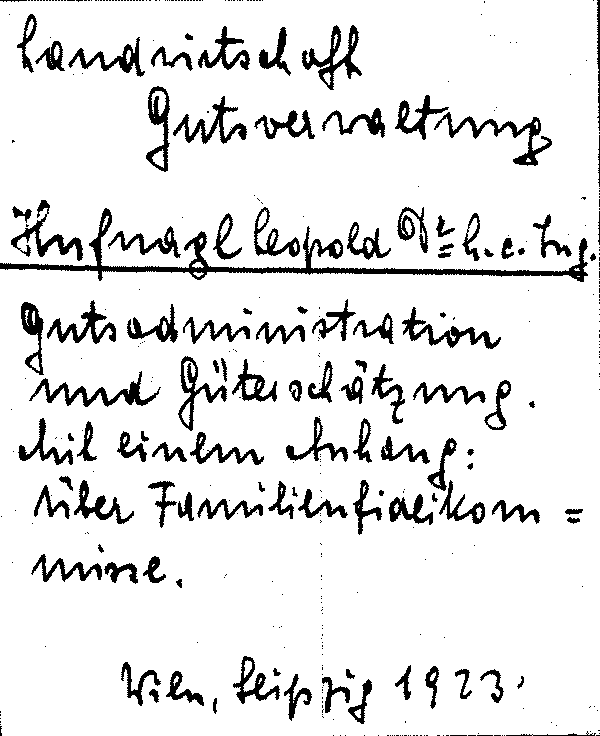 Landwirtschaft
Gutsverwaltung
Hufnagl Leopold Dr= h.c. Ing.
Gutsadministration
und Güterschätzung.
Mit einem Anhang:
über Familienfideikom=
misse.
Wien, Leipzig 1923.